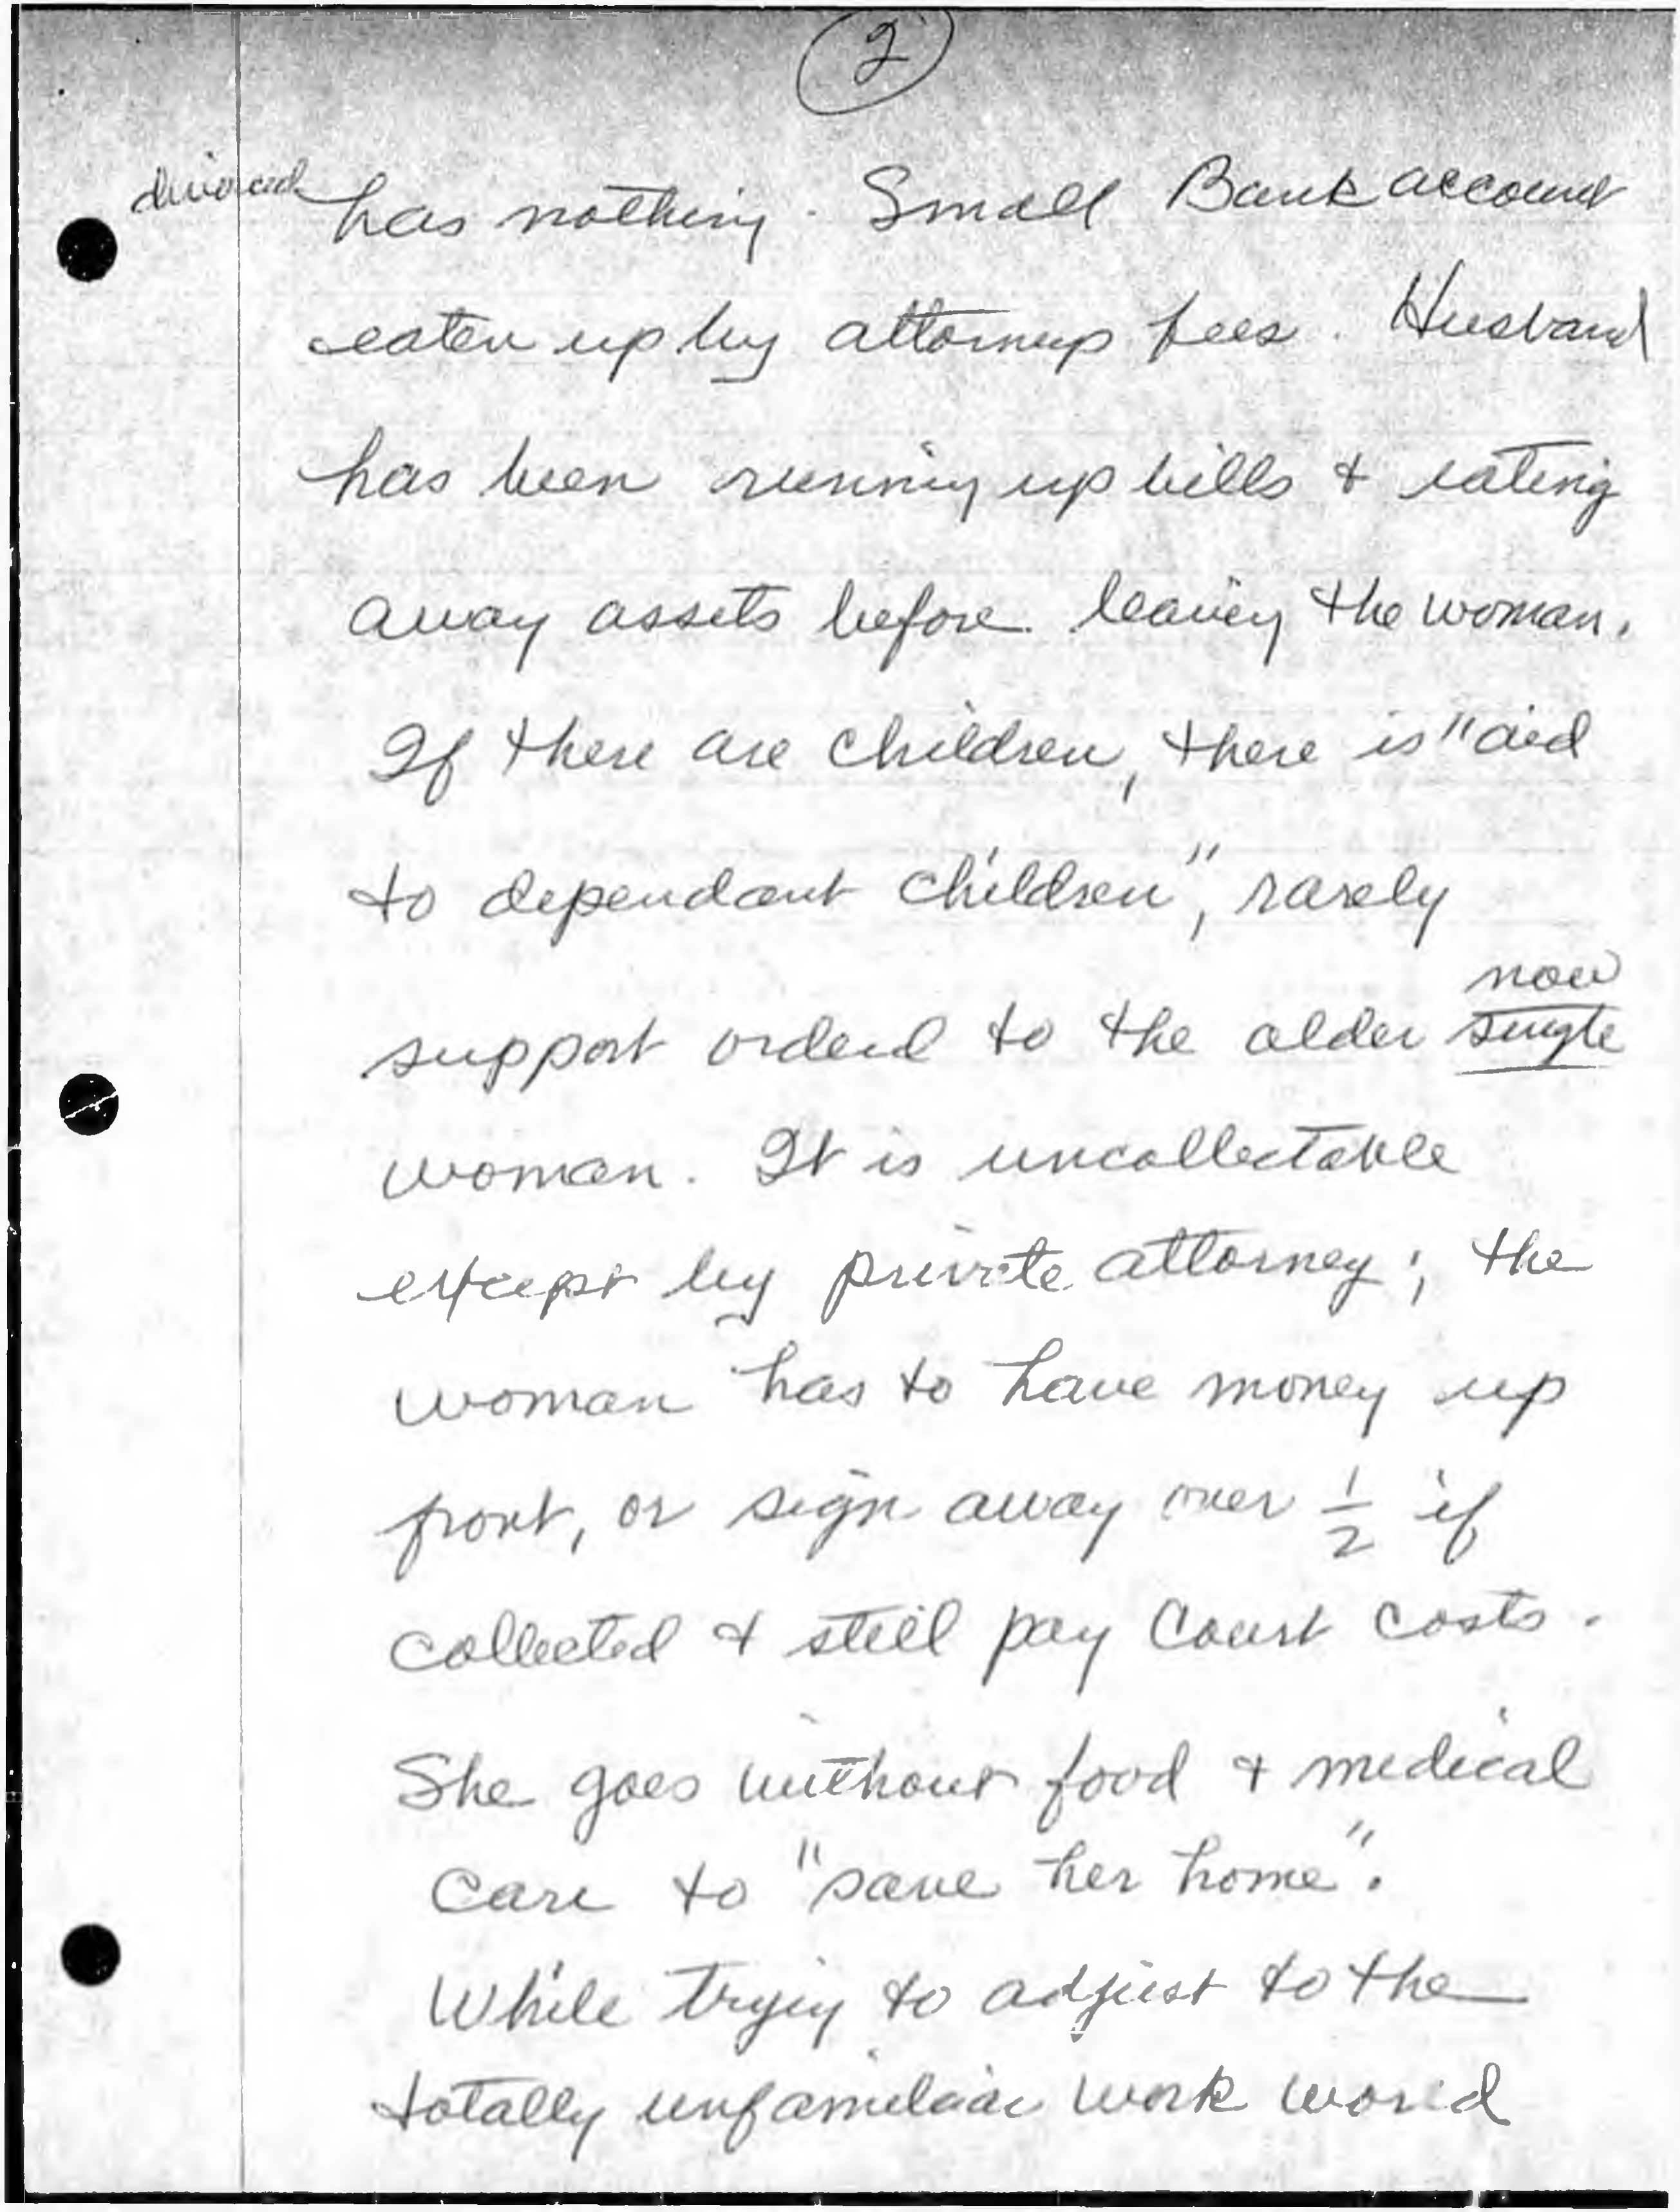 2
divorced has nothing. Small Bank account
eaten up by attorneys fees. Husband
has been running up bills & eating
away assets before leaving the woman.
If there are children, there is "aid
to dependant children", rarely
now
support orderd to the older single
woman. It is uncollectable
except by private attorney; the
woman has to have money up
front, or sign away over 1/2 if
collected & still pay Court costs.
She goes without food & medical
care to "save her home".
While trying to adjust to the
totally unfamiliar work world